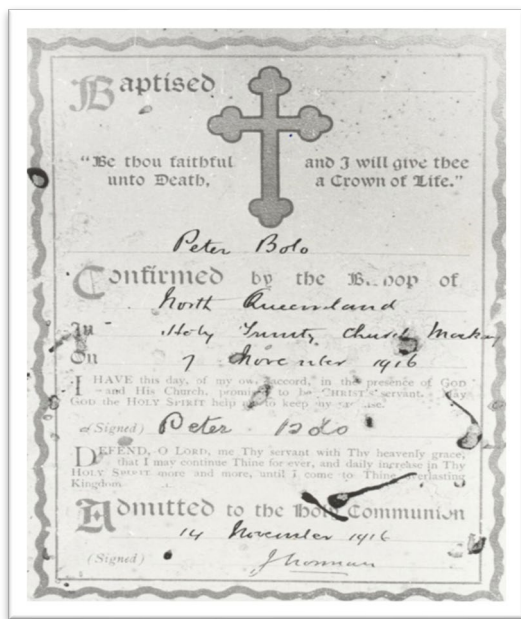 Baptised
"Be thou faithful and I will give thee
unto Death, a Crown of Life."
Peter Bolo
Confirmed by the of
North Queensland
In Holy Trinity Church Mackay
On 7 November 1916
I HAVE this day, of my own accord, in the presence of GOD
and His Church, promised to be CHRIST'S servant. May
GOD the HOLY SPIRIT help me to keep my
(Signed) Peter Bolo
DEFEND, O LORD, me Thy servant with Thy heavenly grace,
that I may continue Thine for ever, and daily increase in Thy
HOLY SPIRIT more and more, until I come to Thine everlasting
Kingdom
Admitted to the Holy Communion
14 November 1916
(Signed)